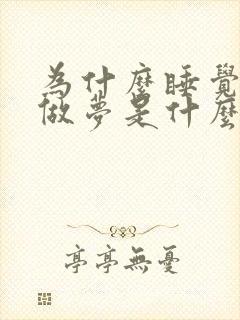 為什麼睡覺
做夢是什麼
亭亭無憂